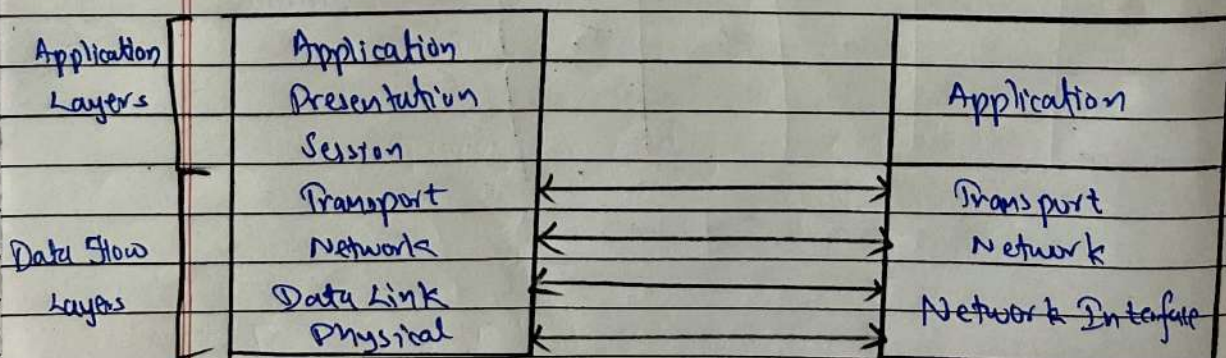 Application
Layers
Data Flow
Layers
Application
Presentation
Session
Transport
Network
Data Link
Physical
Application
Transport
Network
Network Interface